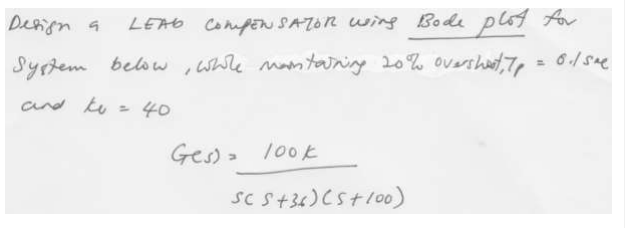 Design a LEAD COMPENSATOR using Bode plot for
System below, while maintaining 20% overshoot, Tp = 0.1 sec
and kv = 40
G(s) = 100K
s(s+36)(s+100)